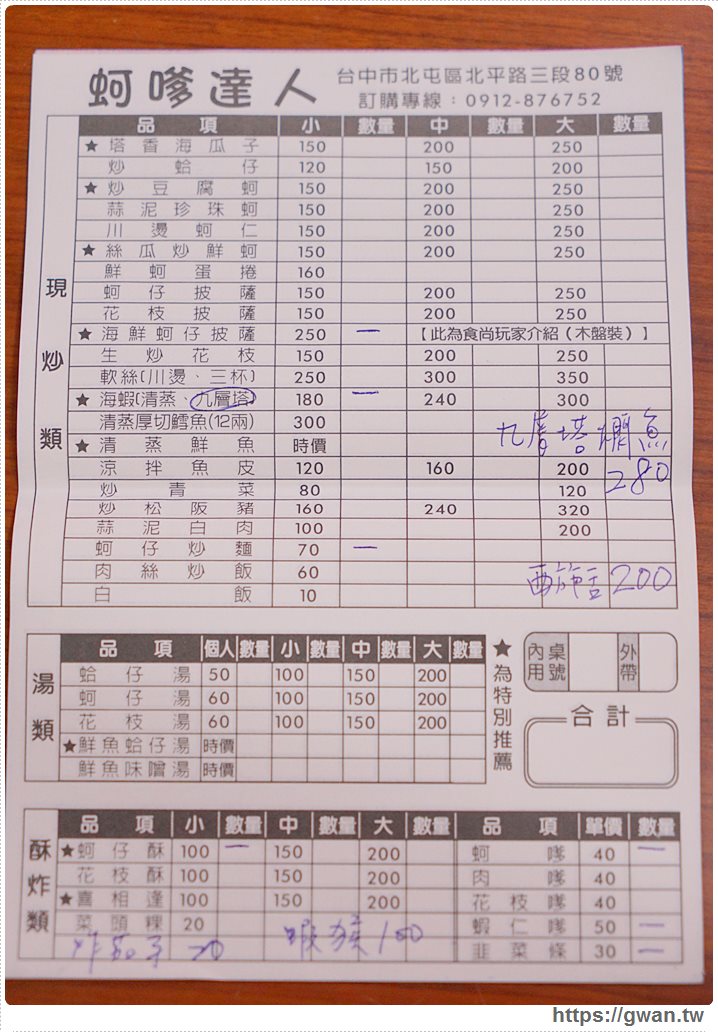 蚵嗲達人 台中市北屯區北平路三段80號
訂購專線：0912-876752
現炒類
品項 小 數量 中 數量 大 數量
★塔香海瓜子 150 200 250
炒蛤仔 120 150 200
★炒豆腐蚵 150 200 250
蒜泥珍珠蚵 150 200 250
川燙蚵仁 150 200 250
★絲瓜炒鮮蚵 150 200 250
鮮蚵蛋捲 160
蚵仔披薩 150 200 250
花枝披薩 150 200 250
★海鮮蚵仔披薩 250 一 【此為食尚玩家介紹（木盤裝）】
生炒花枝 150 200 250
軟絲(川燙、三杯) 250 300 350
★海蝦(清蒸、九層塔) 180 一 240 300
清蒸厚切鱈魚(12兩) 300
九層塔燜魚
★清蒸鮮魚 時價
280
涼拌魚皮 120 160 200
炒青菜 80 120
炒松阪豬 160 240 320
蒜泥白肉 100 200
蚵仔炒麵 70 一
肉絲炒飯 60
西施舌 200
白飯 10
湯類
品項 個人 數量 小 數量 中 數量 大 數量
蛤仔湯 50 100 150 200
蚵仔湯 60 100 150 200
花枝湯 60 100 150 200
★鮮魚蛤仔湯 時價
鮮魚味噌湯 時價
★為特別推薦
內用 桌號 外帶
合計
酥炸類
品項 小 數量 中 數量 大 數量 品項 單價 數量
★蚵仔酥 100 一 150 200 蚵嗲 40 一
花枝酥 100 150 200 肉嗲 40
★喜相逢 100 150 200 花枝嗲 40
菜頭粿 20 蝦仁嗲 50 一
炸茄子 20 蝦猴 100 韭菜條 30 一
https://gwan.tw